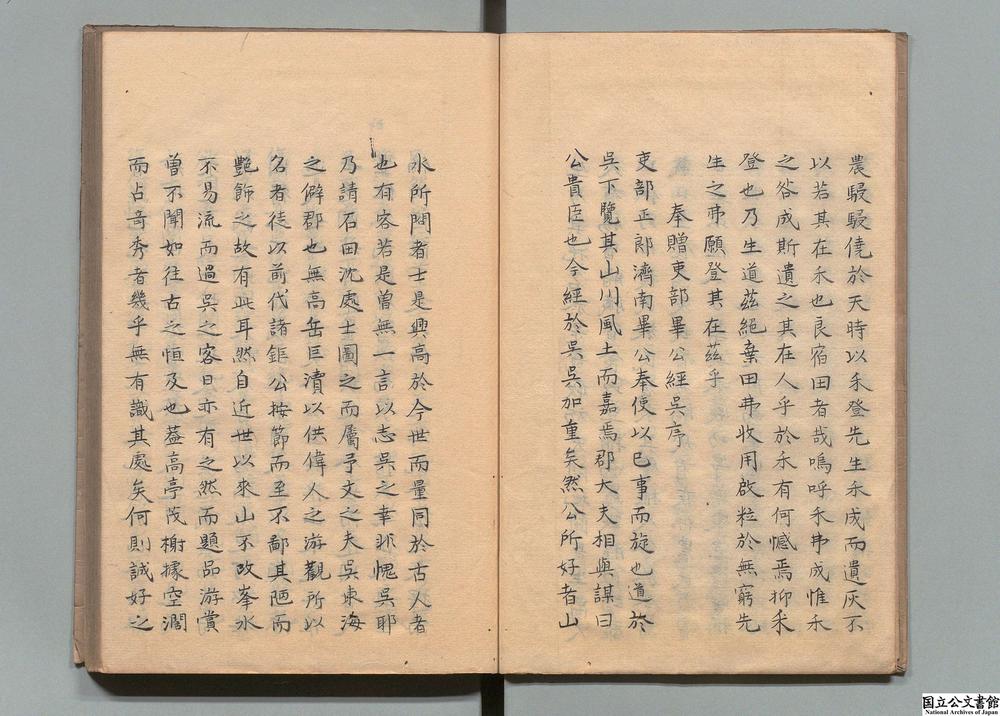 農駸駸僥於天時以禾登先生禾成而遺灰不
以若其在禾也良宿田者哉嗚呼禾弗成惟禾
之咎成斯遺之其在人乎於禾有何憾焉抑禾
登也乃生道茲絕棄田弗收用啟粒於無窮先
生之弗願登其在茲乎
奉贈吏部畢公經吳序
吏部正郎濟南畢公奉使以巳事而旋也道於
吳下覽其山川風土而嘉焉郡大夫相與謀曰
公貴臣也今經於吳吳加重矣然公所好者山
水所閱者士是興高於今世而量同於古人者
也有客若是曾無一言以志吳之幸非愧吳耶
乃請石田沈處士圖之而屬予文之夫吳東海
之僻郡也無高岳巨瀆以供偉人之游觀所以
名者徒以前代諸鉅公按節而至不鄙其陋而
艷飾之故有此耳然自近世以來山不改峯水
不易流而過吳之客日亦有之然而題品游賞
曾不聞如往古之恒及也葢高亭茂榭據空濶
而占竒秀者幾乎無有識其處矣何則誠好之
国立公文書館
National Archives of Japan